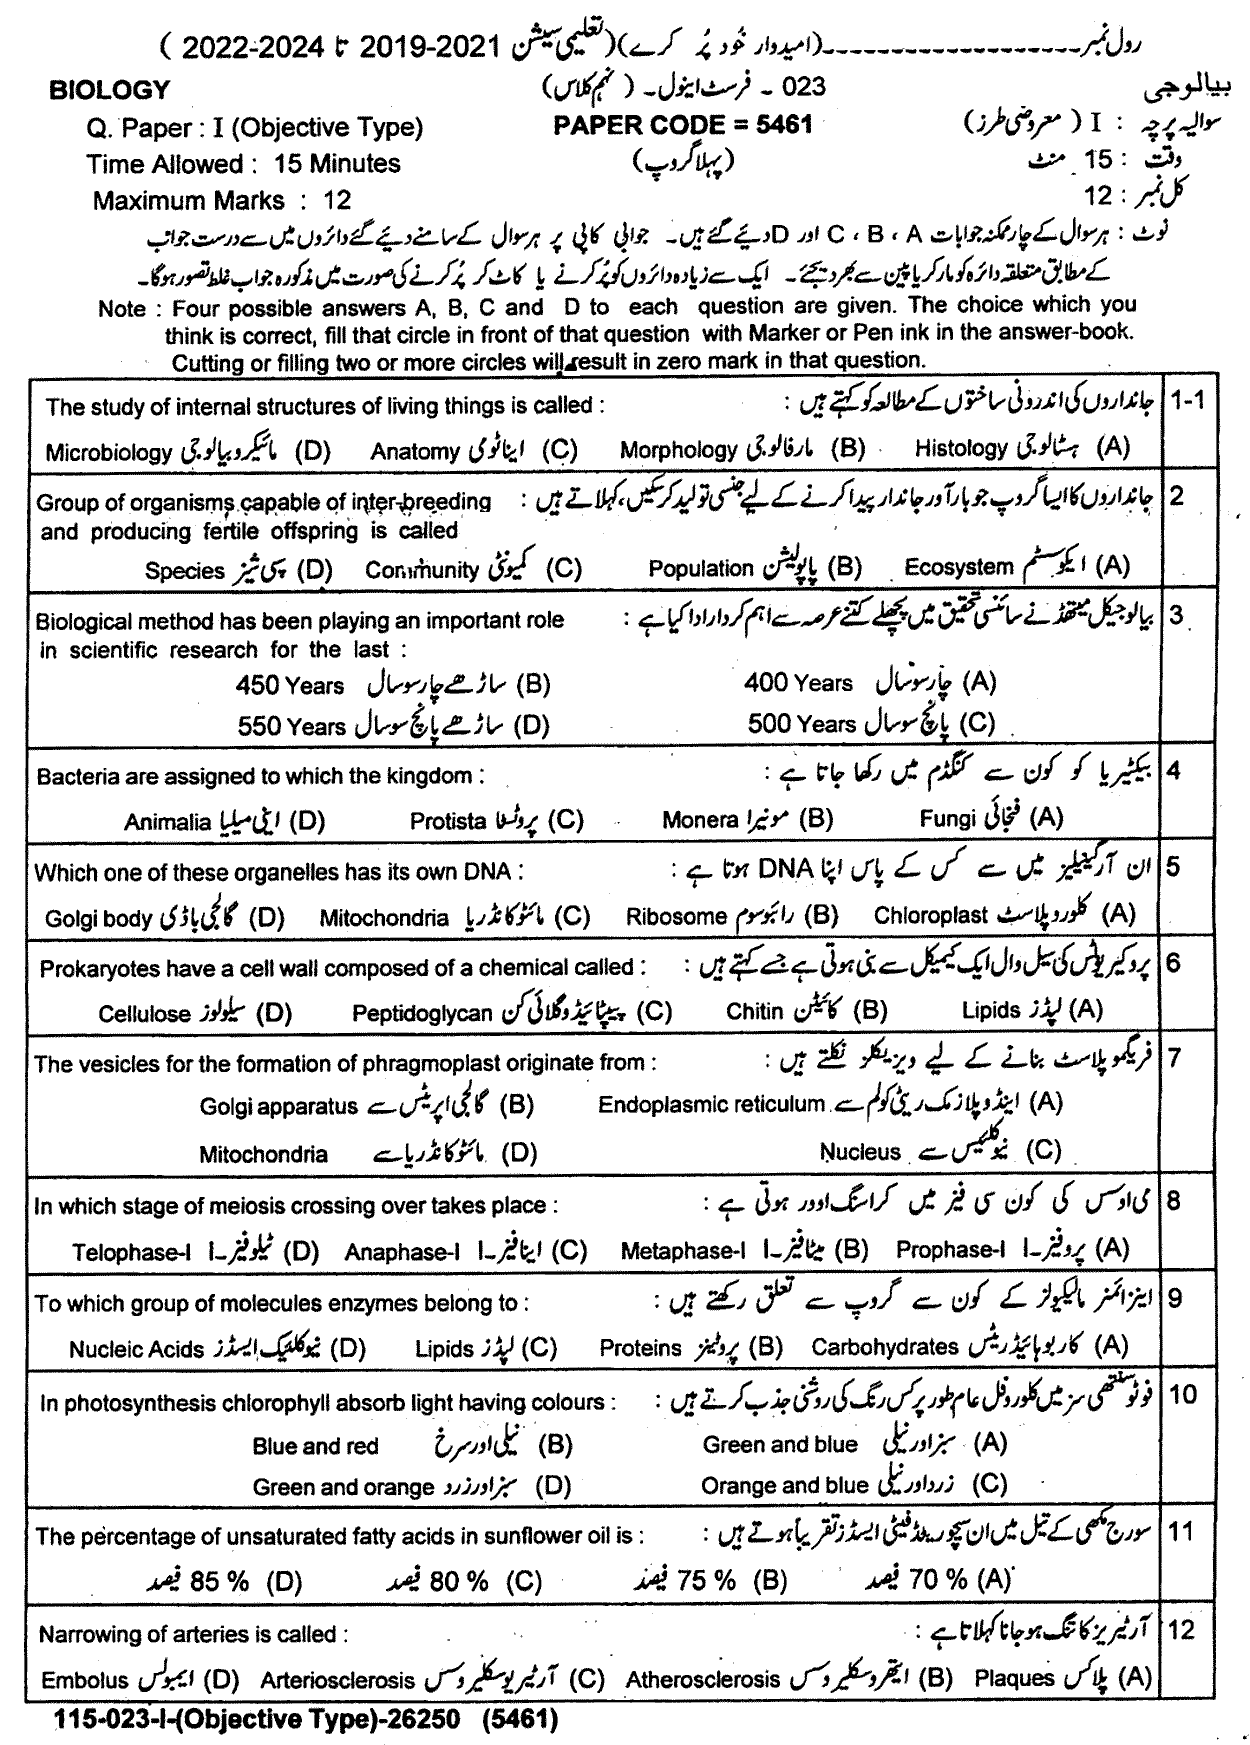 رول نمبر ـــــــــــــــــــــ (امیدوار خُود پُر کرے) (تعلیمی سیشن 2021-2019 تا 2024-2022)
BIOLOGY 023 ۔ فرسٹ اینول ۔ (نہم کلاس) بیالوجی
Q. Paper : I (Objective Type) PAPER CODE = 5461 سوالیہ پرچہ : I (معروضی طرز)
Time Allowed : 15 Minutes (پہلا گروپ) وقت : 15 منٹ
Maximum Marks : 12 کل نمبر : 12
نوٹ : ہر سوال کے چار ممکنہ جوابات C ، B ، A اور D دیئے گئے ہیں۔ جوابی کاپی پر ہر سوال کے سامنے دیئے گئے دائروں میں سے درست جواب
کے مطابق متعلقہ دائرہ کو مارکر یا پین سے بھر دیجئے۔ ایک سے زیادہ دائروں کو پُر کرنے یا کاٹ کر پُر کرنے کی صورت میں مذکورہ جواب غلط تصور ہوگا۔
Note : Four possible answers A, B, C and D to each question are given. The choice which you
think is correct, fill that circle in front of that question with Marker or Pen ink in the answer-book.
Cutting or filling two or more circles will result in zero mark in that question.
The study of internal structures of living things is called : جانداروں کی اندرونی ساختوں کے مطالعہ کو کہتے ہیں : 1-1
Microbiology مائیکروبیالوجی (D) Anatomy ایناٹومی (C) Morphology مارفالوجی (B) Histology ہسٹالوجی (A)
Group of organisms capable of inter-breeding جانداروں کا ایسا گروپ جو بارآور جاندار پیدا کرنے کے لیے جنسی تولید کرسکیں، کہلاتے ہیں : 2
and producing fertile offspring is called
Species سپی شیز (D) Community کمیونٹی (C) Population پاپولیشن (B) Ecosystem ایکوسسٹم (A)
Biological method has been playing an important role بیالوجیکل میتھڈ نے سائنسی تحقیق میں پچھلے کتنے عرصہ سے اہم کردار ادا کیا ہے : 3
in scientific research for the last :
450 Years ساڑھے چار سو سال (B) 400 Years چار سو سال (A)
550 Years ساڑھے پانچ سو سال (D) 500 Years پانچ سو سال (C)
Bacteria are assigned to which the kingdom : بیکٹیریا کو کون سے کنگڈم میں رکھا جاتا ہے : 4
Animalia اینی میلیا (D) Protista پروٹسٹا (C) Monera مونیرا (B) Fungi فنجائی (A)
Which one of these organelles has its own DNA : ان آرگنیلیز میں سے کس کے پاس اپنا DNA ہوتا ہے : 5
Golgi body گالجی باڈی (D) Mitochondria مائٹوکانڈریا (C) Ribosome رائبوسوم (B) Chloroplast کلوروپلاسٹ (A)
Prokaryotes have a cell wall composed of a chemical called : پروکیریوٹس کی سیل وال ایک کیمیکل سے بنی ہوتی ہے جسے کہتے ہیں : 6
Cellulose سیلولوز (D) Peptidoglycan پیپٹائیڈوگلائی کن (C) Chitin کائٹن (B) Lipids لپڈز (A)
The vesicles for the formation of phragmoplast originate from : فریگموپلاسٹ بنانے کے لیے ویزیکلز نکلتے ہیں : 7
Golgi apparatus گالجی اپریٹس سے (B) Endoplasmic reticulum اینڈوپلازمک ریٹی کولم سے (A)
Mitochondria مائٹوکانڈریا سے (D) Nucleus نیوکلیئس سے (C)
In which stage of meiosis crossing over takes place : می اوسس کی کون سی فیز میں کراسنگ اوور ہوتی ہے : 8
Telophase-I ٹیلوفیز-I (D) Anaphase-I اینافیز-I (C) Metaphase-I میٹافیز-I (B) Prophase-I پروفیز-I (A)
To which group of molecules enzymes belong to : اینزائمز مالیکیولز کے کون سے گروپ سے تعلق رکھتے ہیں : 9
Nucleic Acids نیوکلیک ایسڈز (D) Lipids لپڈز (C) Proteins پروٹینز (B) Carbohydrates کاربوہائیڈریٹس (A)
In photosynthesis chlorophyll absorb light having colours : فوٹوسنتھی سز میں کلوروفل عام طور پر کس رنگ کی روشنی جذب کرتے ہیں : 10
Blue and red نیلی اور سرخ (B) Green and blue سبز اور نیلی (A)
Green and orange سبز اور زرد (D) Orange and blue زرد اور نیلی (C)
The percentage of unsaturated fatty acids in sunflower oil is : سورج مکھی کے تیل میں ان سیچوریٹڈ فیٹی ایسڈز تقریباً ہوتے ہیں : 11
85 % فیصد (D) 80 % فیصد (C) 75 % فیصد (B) 70 % فیصد (A)
Narrowing of arteries is called : آرٹیریز کا تنگ ہوجانا کہلاتا ہے : 12
Embolus ایمبولس (D) Arteriosclerosis آرٹیریوسکلیروسس (C) Atherosclerosis ایتھروسکلیروسس (B) Plaques پلاکس (A)
115-023-I-(Objective Type)-26250 (5461)